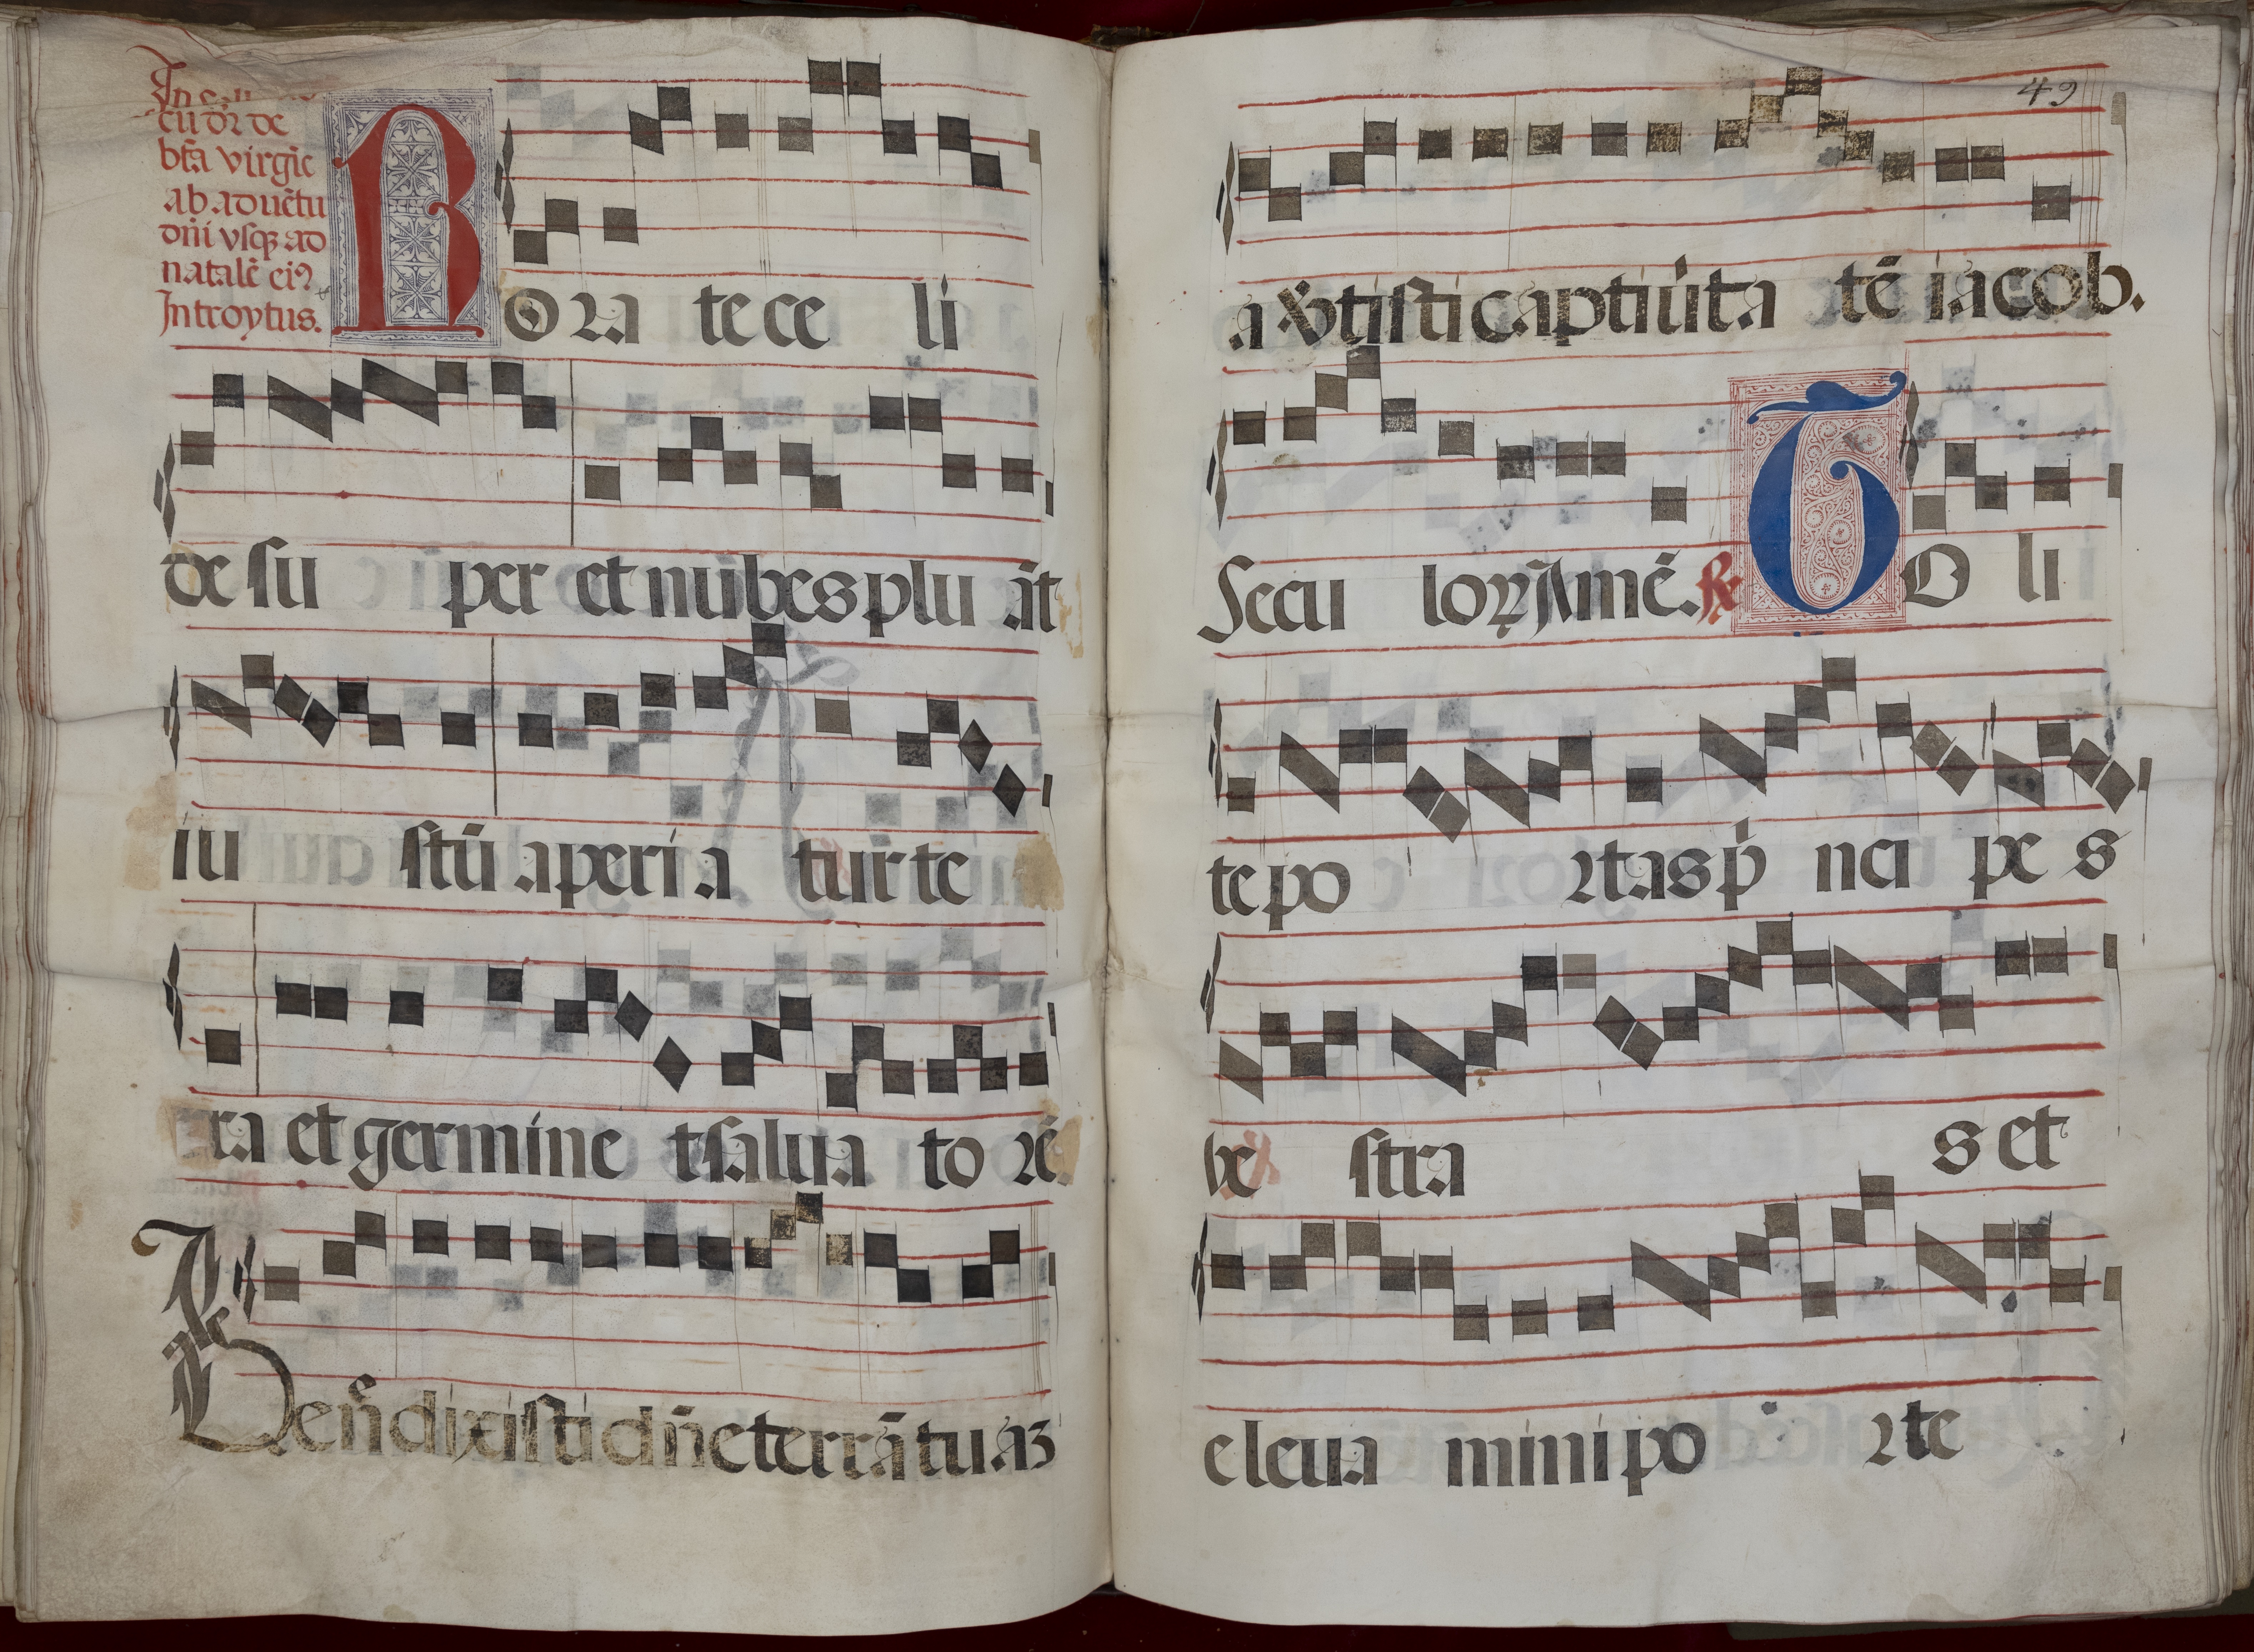 cū dr̄ de
btā virgīe
ab aduētu
dn̄i vsqꝫ ad
natalē eiꝰ
Introytus.
Rora te ce li
de su per et nubes plu āt
iu stū aperi a tur te
ra et germine t salua to rē.
Ps
Beñdixisti dn̄e terrā tuaꝫ
49
auertisti captiuita tē iacob.
Secu loꝝ Amē. ℟ Tolli
te po rtas p̍ nci pe s
ve stra s et
eleua mini po rte